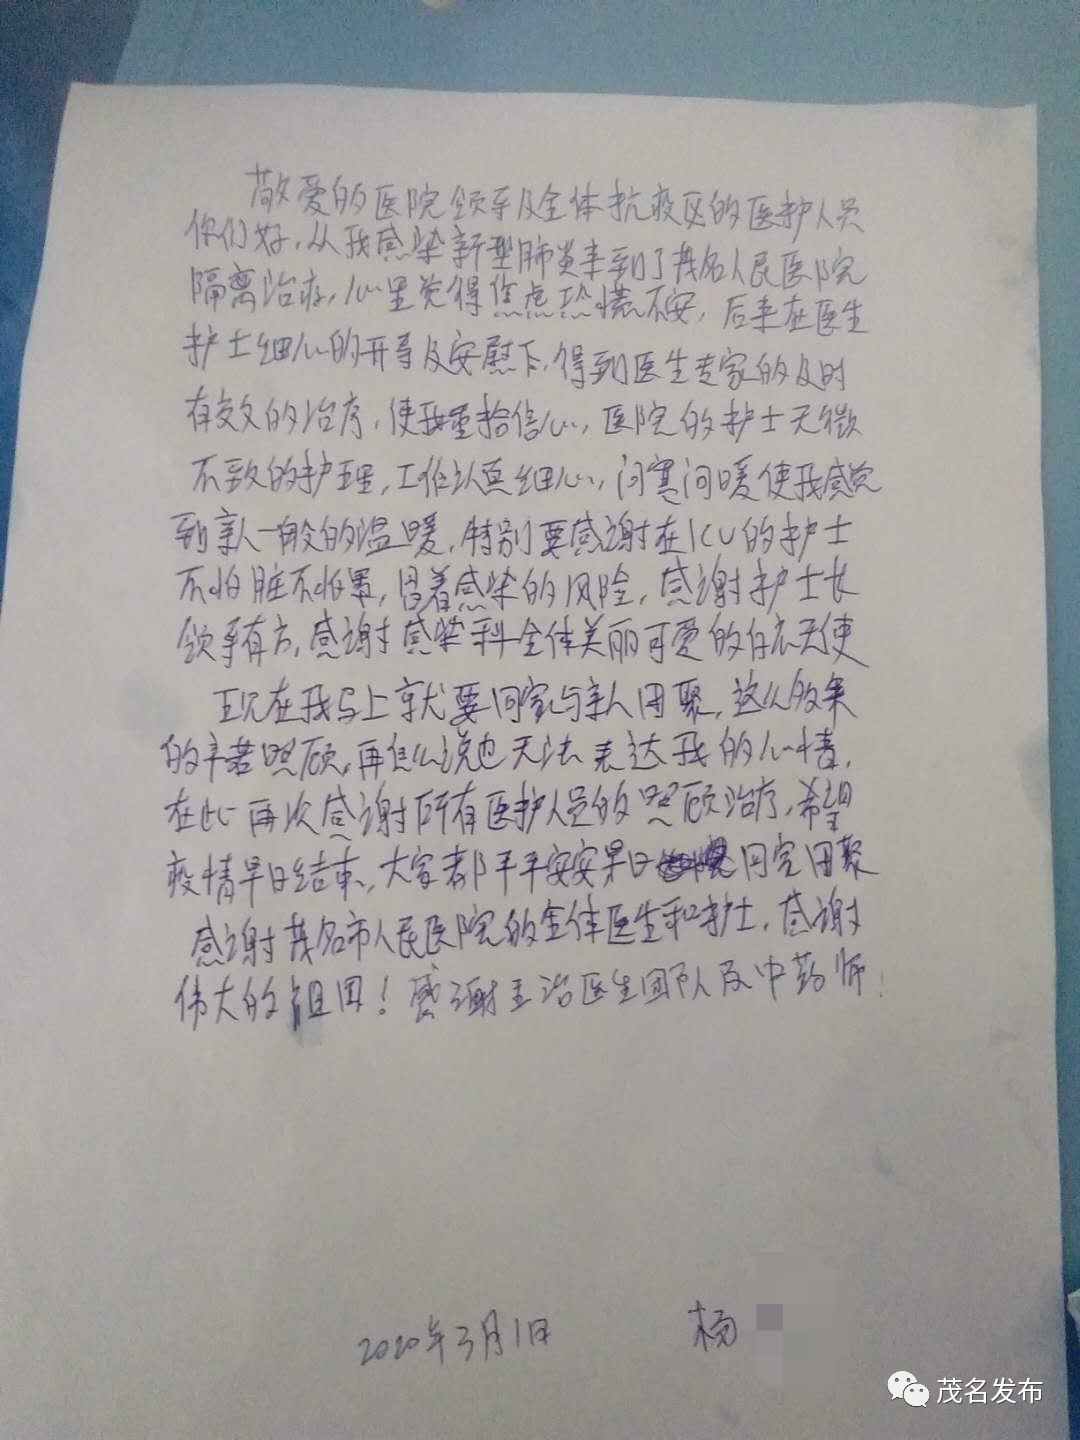 敬爱的医院领导及全体抗疫区的医护人员
你们好，从我感染新型肺炎来到了茂名人民医院
隔离治疗，心里觉得焦虑恐慌不安，后来在医生
护士细心的开导及安慰下，得到医生专家的及时
有效的治疗，使我重拾信心，医院的护士无微
不致的护理，工作认真细心，问寒问暖使我感觉
到亲人一般的温暖，特别要感谢在ICU的护士
不怕脏不怕累，冒着感染的风险，感谢护士长
领导有方，感谢感染科全体美丽可爱的白衣天使
现在我马上就要回家与亲人团聚，这么多来
的辛苦照顾，再怎么说也无法表达我的心情，
在此再次感谢所有医护人员的照顾治疗，希望
疫情早日结束，大家都平平安安早日回家团聚
感谢茂名市人民医院的全体医生和护士，感谢
伟大的祖国！感谢主治医生团队及中药师！
2020年3月1日 杨
茂名发布